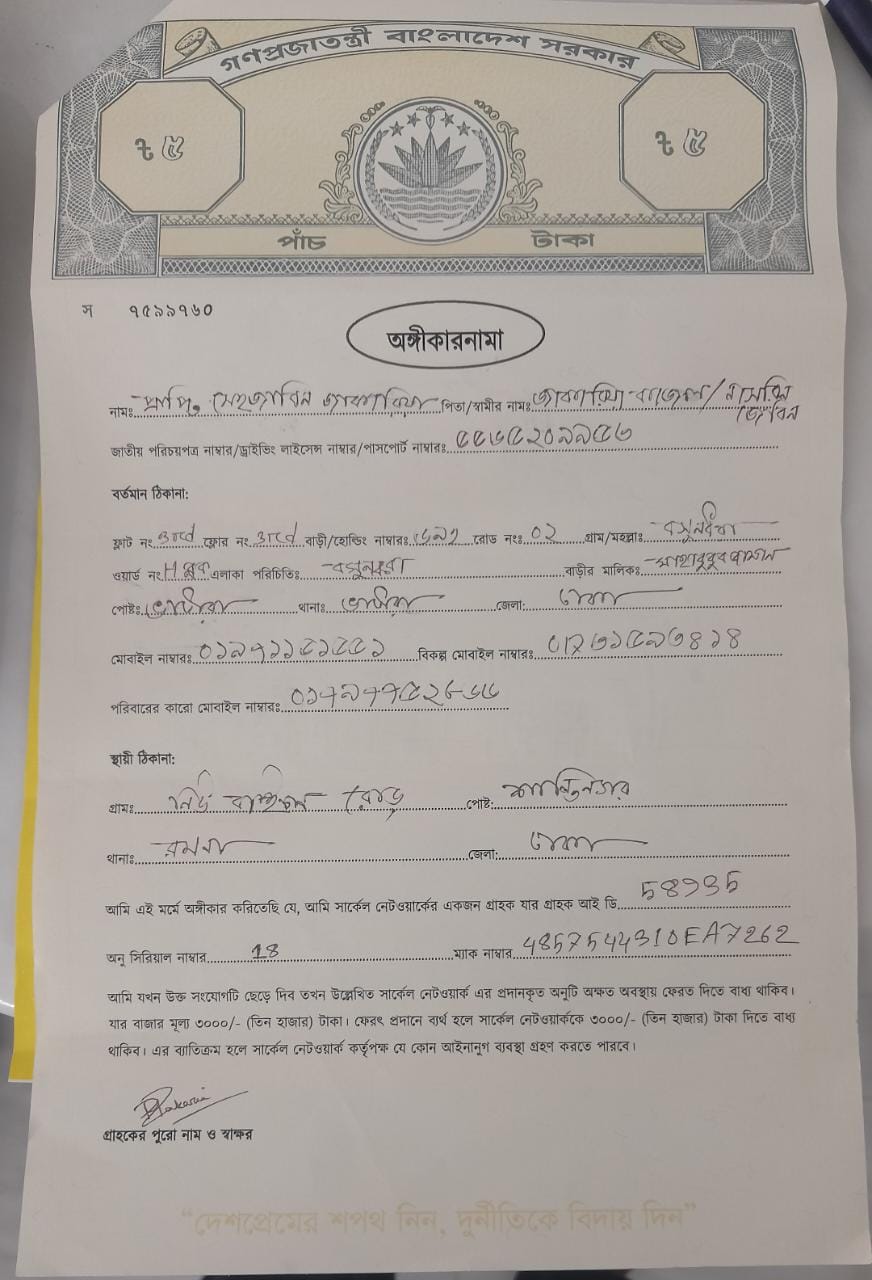 গণপ্রজাতন্ত্রী বাংলাদেশ সরকার
৳ ৫ ৳ ৫
পাঁচ টাকা
স ৭৫৯৯৭৬০
অঙ্গীকারনামা
নামঃ মেহজাবিন জাকারিয়া পিতা/স্বামীর নামঃ
জাতীয় পরিচয়পত্র নাম্বার/ড্রাইভিং লাইসেন্স নাম্বার/পাসপোর্ট নাম্বারঃ
বর্তমান ঠিকানা:
ফ্লাট নং ফ্লোর নং বাড়ী/হোল্ডিং নাম্বারঃ রোড নংঃ ০২ গ্রাম/মহল্লাঃ বসুন্ধরা
ওয়ার্ড নং H ব্লক এলাকা পরিচিতিঃ বসুন্ধরা বাড়ীর মালিকঃ
পোষ্টঃ ভাটারা থানাঃ ভাটারা জেলাঃ ঢাকা
মোবাইল নাম্বারঃ বিকল্প মোবাইল নাম্বারঃ
পরিবারের কারো মোবাইল নাম্বারঃ
স্থায়ী ঠিকানা:
গ্রামঃ রোড পোষ্ট: শান্তিনগর
থানাঃ রমনা জেলা: ঢাকা
আমি এই মর্মে অঙ্গীকার করিতেছি যে, আমি সার্কেল নেটওয়ার্কের একজন গ্রাহক যার গ্রাহক আই ডি
অনু সিরিয়াল নাম্বার 18 ম্যাক নাম্বার 4857544310EA7262
আমি যখন উক্ত সংযোগটি ছেড়ে দিব তখন উল্লেখিত সার্কেল নেটওয়ার্ক এর প্রদানকৃত অনুটি অক্ষত অবস্থায় ফেরত দিতে বাধ্য থাকিব।
যার বাজার মূল্য ৩০০০/- (তিন হাজার) টাকা। ফেরৎ প্রদানে ব্যর্থ হলে সার্কেল নেটওয়ার্ককে ৩০০০/- (তিন হাজার) টাকা দিতে বাধ্য
থাকিব। এর ব্যাতিক্রম হলে সার্কেল নেটওয়ার্ক কর্তৃপক্ষ যে কোন আইনানুগ ব্যবস্থা গ্রহণ করতে পারবে।
গ্রাহকের পুরো নাম ও স্বাক্ষর
“দেশপ্রেমের শপথ নিন, দুর্নীতিকে বিদায় দিন”